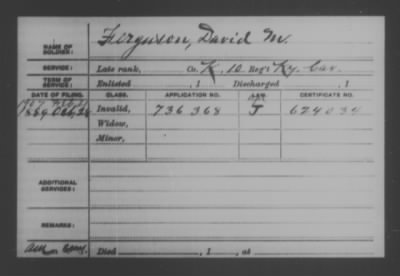 NAME OF SOLDIER: Ferguson, David M.
SERVICE: Late rank, Co. K, 10 Reg't Ky. Cav.
TERM OF SERVICE: Enlisted , 1 Discharged , 1
DATE OF FILING. CLASS. APPLICATION NO. LAW. CERTIFICATE NO.
1889 Oct, 28 Invalid, 736 368 J 624034
Widow,
Minor,
ADDITIONAL SERVICES:
REMARKS:
Died , 1 , at